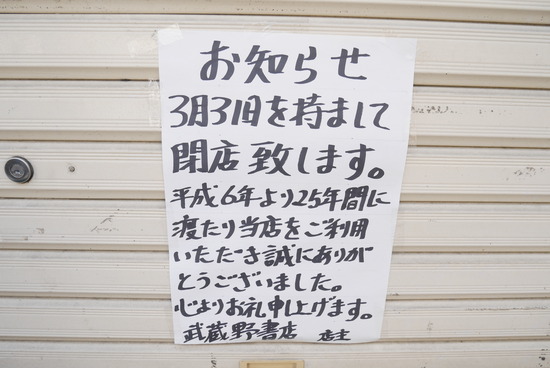 お知らせ
3月31日を持まして
閉店致します。
平成6年より25年間に
渡たり当店をご利用
いただき誠にありが
とうございました。
心よりお礼申し上げます。
武蔵野書店 店主